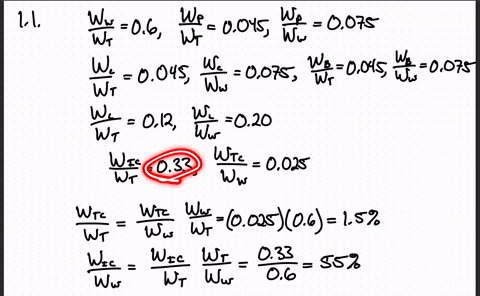 1.1. W_W/W_T = 0.6, W_P/W_T = 0.045, W_P/W_W = 0.075
W_C/W_T = 0.045, W_C/W_W = 0.075, W_B/W_T = 0.045, W_B/W_W = 0.075
W_L/W_T = 0.12, W_L/W_W = 0.20
W_IC/W_T = 0.33, W_TC/W_W = 0.025
W_TC/W_T = W_TC/W_W W_W/W_T = (0.025)(0.6) = 1.5%
W_IC/W_W = W_IC/W_T W_T/W_W = 0.33/0.6 = 55%